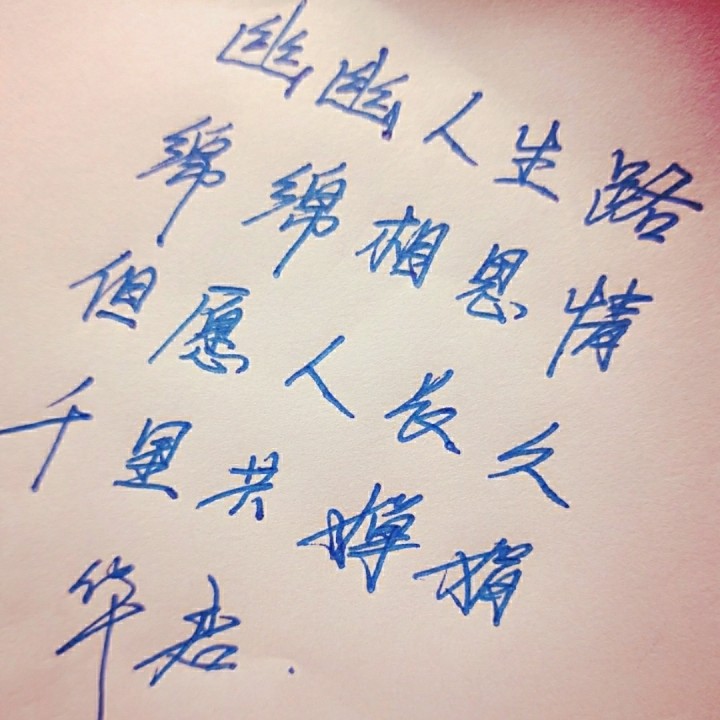 幽幽人生路
绵绵相思情
但愿人长久
千里共婵娟
华君.